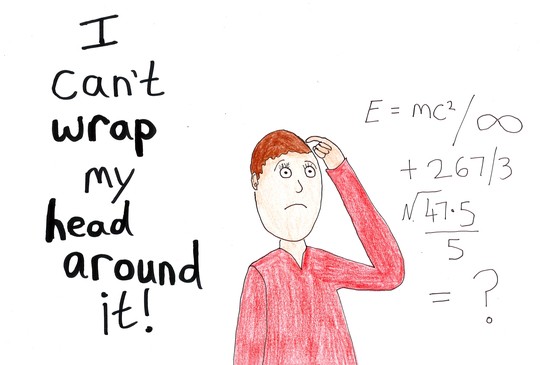 I
can't
wrap
my
head
around
it!
E = mc²/∞
+ 267/3
√47.5
5
= ?